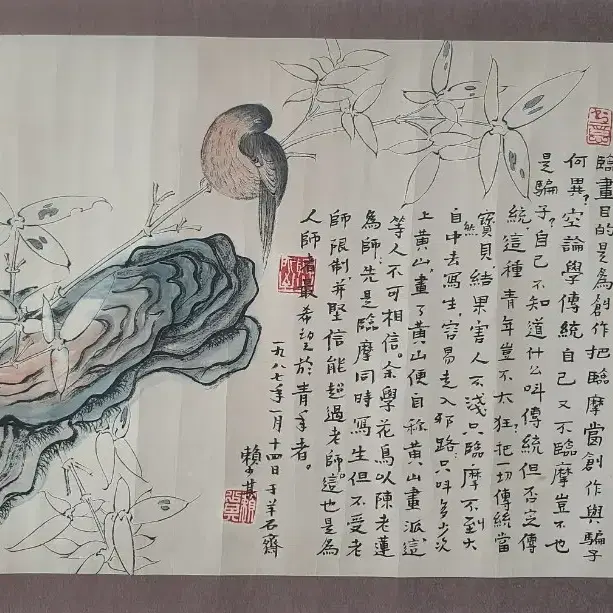 臨畫目的是為創作把臨摩當創作與騙子
何異？空論學傳統自己又不臨摩豈不也
是騙子？自己不知道什么叫傳統但否定傳
統，這種青年豈不太狂？把一切傳統當
寶貝結果害人不淺只臨摩不到大
然
自中去寫生，容易走入邪路只叫多少次
上黄山畫了黄山便自称黄山畫派，這
等人不可相信。余學花鳥以陳老蓮
為師，先是臨摩同時寫生但不受老
師限制，并堅信能超過老師。這也是為
人師者最希望於青年者。
一九八七年一月十四日于羊石齋
賴少其